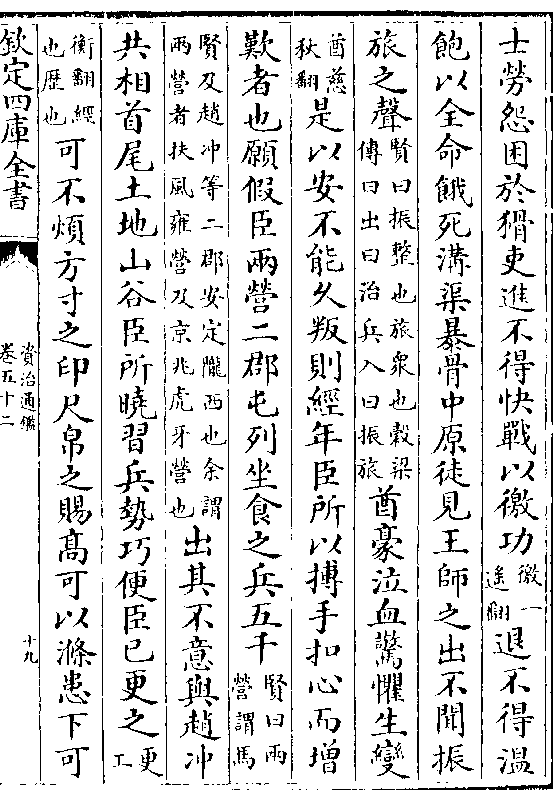 士勞怨困於猾吏進不得快戰以徼功徼一遥翻退不得温
飽以全命餓死溝渠暴骨中原徒見王師之出不聞振
旅之聲賢曰振整也旅衆也穀梁傳曰出曰治兵入曰振旅酋豪泣血驚懼生變
酋慈秋翻是以安不能乆叛則經年臣所以搏手扣心而增
歎者也願假臣兩營二郡屯列坐食之兵五千賢曰兩營謂馬
賢及趙冲等二郡安定隴西也余謂兩營者扶風雍營及京兆虎牙營也出其不意與趙冲
共相首尾土地山谷臣所曉習兵勢巧便臣已更之更工
衡翻經也歴也可不煩方寸之印尺帛之賜髙可以滌患下可
欽定四庫全書
資治通鑑
卷五十二
十九